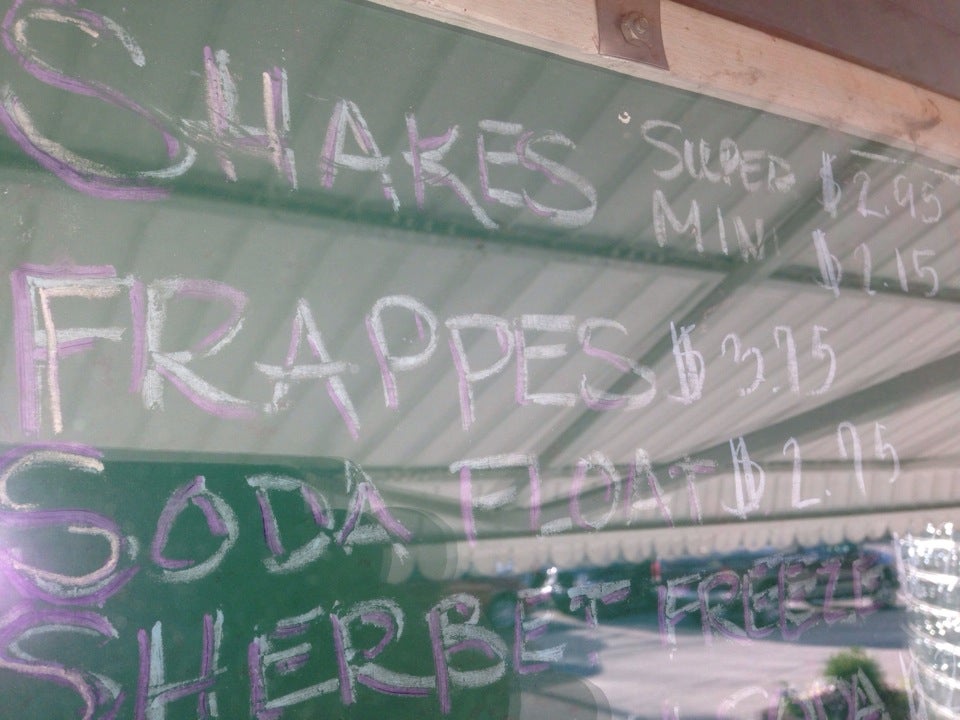 SHAKES SUPER $2.95
MINI $2.15
FRAPPES $3.75
SODA FLOAT $2.75
SHERBET FREEZE